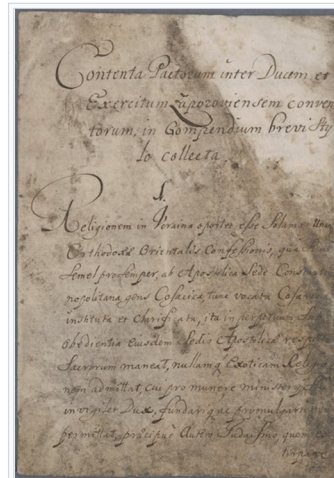 Contenta Pactorum inter Ducem et
Exercitum Zaporoviensem conven
torum, in Compendium brevi Sty
lo collecta.
1.
Religionem in Ucraina oportet esse Solam et
Orthodoxæ Orientalis Confessionis, qua
Semel pro semper, ab Apostolica Sede Constan
nopolitana gens Cosacica, tunc vocata
instituta et Clarificata, ita in perpetuum sub
obedientia Eiusdem Sedis Apostolicæ respectu
Sacrorum maneat, nullamq Exoticam Religio
nem admittat, cui pro munere ministerii
invigilet Dux, fundariq ac promulgari non
permittat, præcipuè Autem Judaismo quem